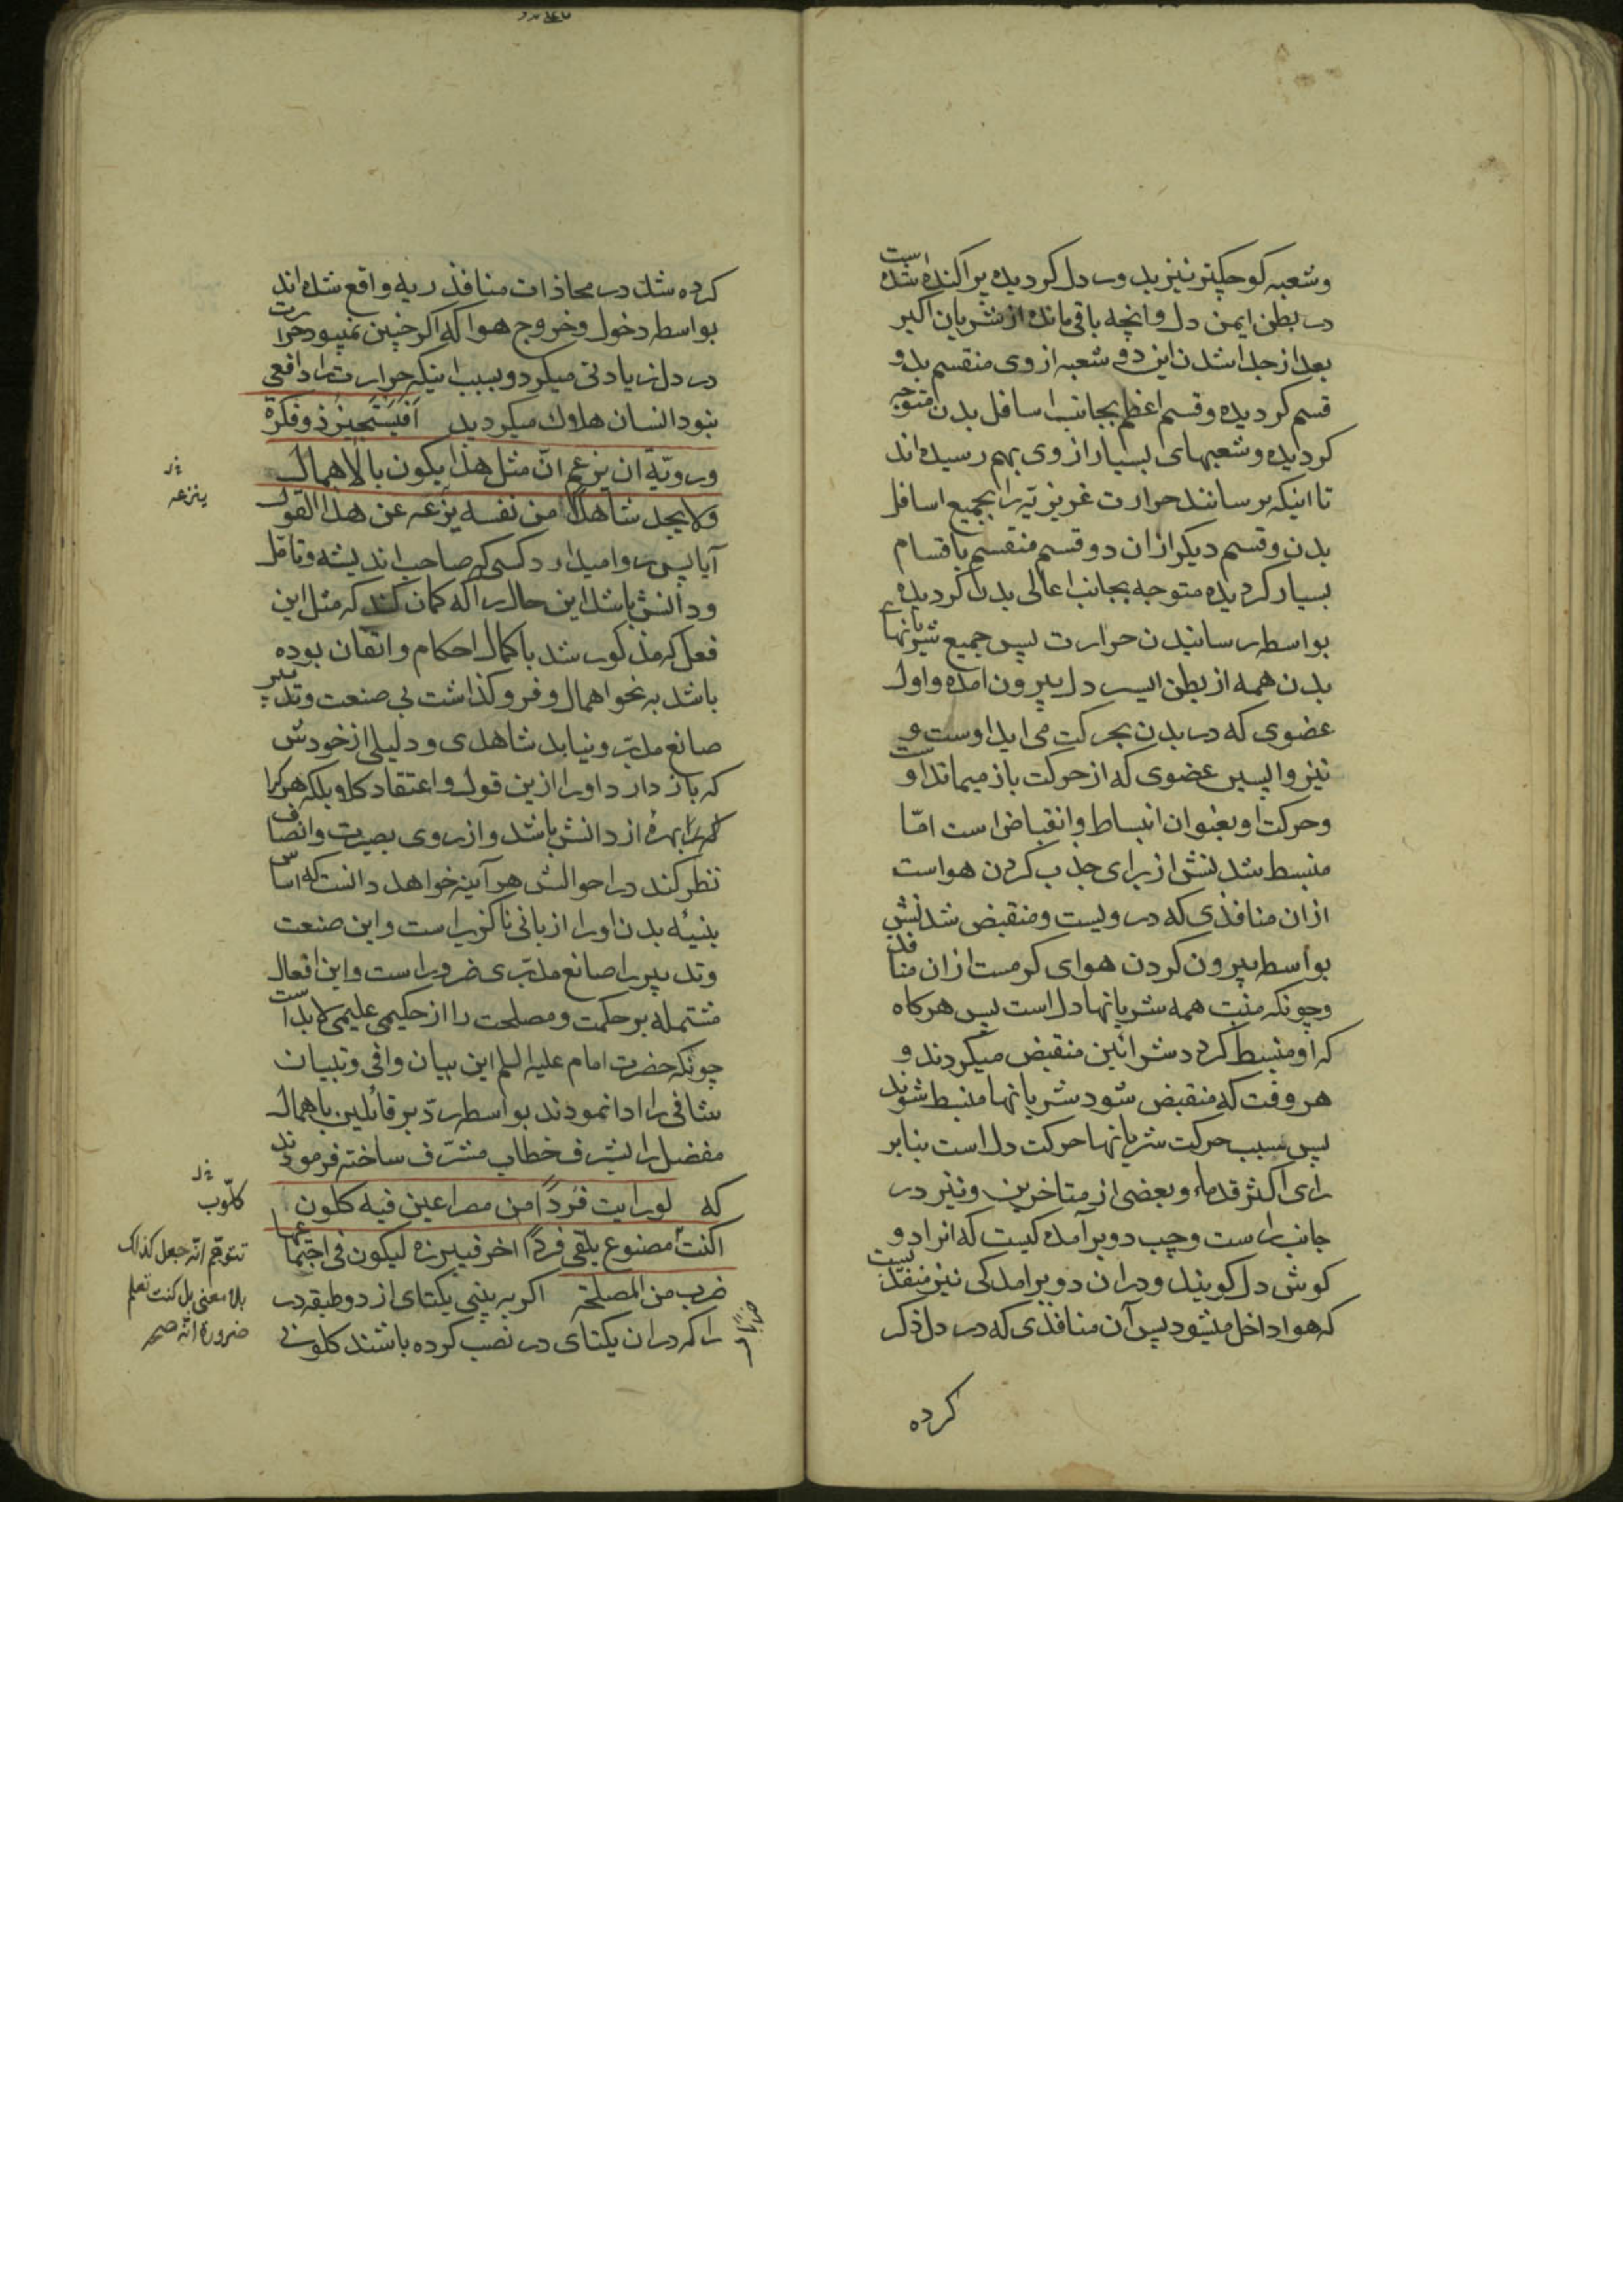 وشعبه کوچکتر نیز بدور دل کردیده پراکنده شده است
در بطن ایمن دل وانچه باقی مانده از شریان اکبر
بعد از جدا شدن این دو شعبه از وی منقسم بدو
قسم کردیده وقسم اعظم بجانب اسافل بدن متوجه
کردیده وشعبهای بسیار از وی بهم رسیده اند
تا اینکه برسانند حرارت غریزیّه را بجمیع اسافل
بدن وقسم دیکر ازان دو قسم منقسم باقسام
بسیار کردیده متوجه بجانب اعالی بدن کردیده
بواسطه رسانیدن حرارت پس جمیع شریانهای
بدن همه از بطن ایسر دل بیرون امده واول
عضوی که در بدن بحرکت می اید اوست و
نیز واپسین عضوی که از حرکت باز میماند اوست
وحرکت او بعنوان انبساط وانقباض است امّا
منبسط شدنش از برای جذب کردن هواست
ازان منافذی که در ویست ومنقبض شدنش
بواسطه بیرون کردن هوای کرمست ازان منافذ
وچونکه منبت همه شریانها دل است پس هرکاه
که او منبسط کردد شرائین منقبض میکردند و
هر وقت که منقبض شود شریانها منبسط شوند
پس سبب حرکت شریانها حرکت دل است بنابر
رای اکثر قدماء وبعضی از متاخرین ونیز در
جانب راست وچپ دو برآمدکیست که انرا دو
کوش دل کویند ودران دو برامدکی نیز منفذیست
که هوا داخل میشود پس آن منافذی که در دل ذکر
کرده
کرده شد در محاذات منافذ ریه واقع شده اند
بواسطه دخول وخروج هوا که اکر چنین نمیبود حرارت
در دل زیادتی میکرد وبسبب اینکه حرارت را دافعی
نبود انسان هلاک میکردید أفیستجیز ذو فکرة
ورویّة ان یزعم انّ مثل هذا یکون بالاهمال
ولا یجد شاهدا من نفسه یزعه عن هذا القول
ینزعه
آیا پس روا میدارد کسی که صاحب اندیشه وتامّل
ودانش باشد این حال را که کمان کند که مثل این
فعل که مذکور شد با کمال احکام واتقان بوده
باشد به نحو اهمال وفروکذاشت بی صنعت وتدبیر
صانع مدبّر ونیابد شاهدی ودلیلی از خودش
که باز دارد اورا ازین قول واعتقاد کلا وبلکه هرکرا
بهرهٔ از دانش باشد واز روی بصیرت وانصاف
نظر کند در احوالش هر آینه خواهد دانست که اساس
بنیهٔ بدن اورا از بانی ناکزیر است واین صنعت
وتدبیر را صانع مدبّری ضرور است واین افعال
مشتمله بر حکمت ومصلحت را از حکیمی علیمی لابد است
چونکه حضرت امام علیه السلم این بیان وافی وتبیان
شافی را ادا نمودند بواسطه ردّ بر قائلین باهمال
مفضل را بشرف خطاب مشرّف ساخته فرمودند
که لو رایت فردًا من مصراعین فیه کلون
کلّوب
اکنت مصنوع یلقی فردًا اخر فیبرزه لیکون فی اجتماعهما
تتوهّم انّه جعل کذلک
بلا معنی بل کنت تعلم
ضرورة انّه
ضرب من المصلحة اکر به بینی یکتای از دو طبقه در
را که دران یکتای در نصب کرده باشند کلونی